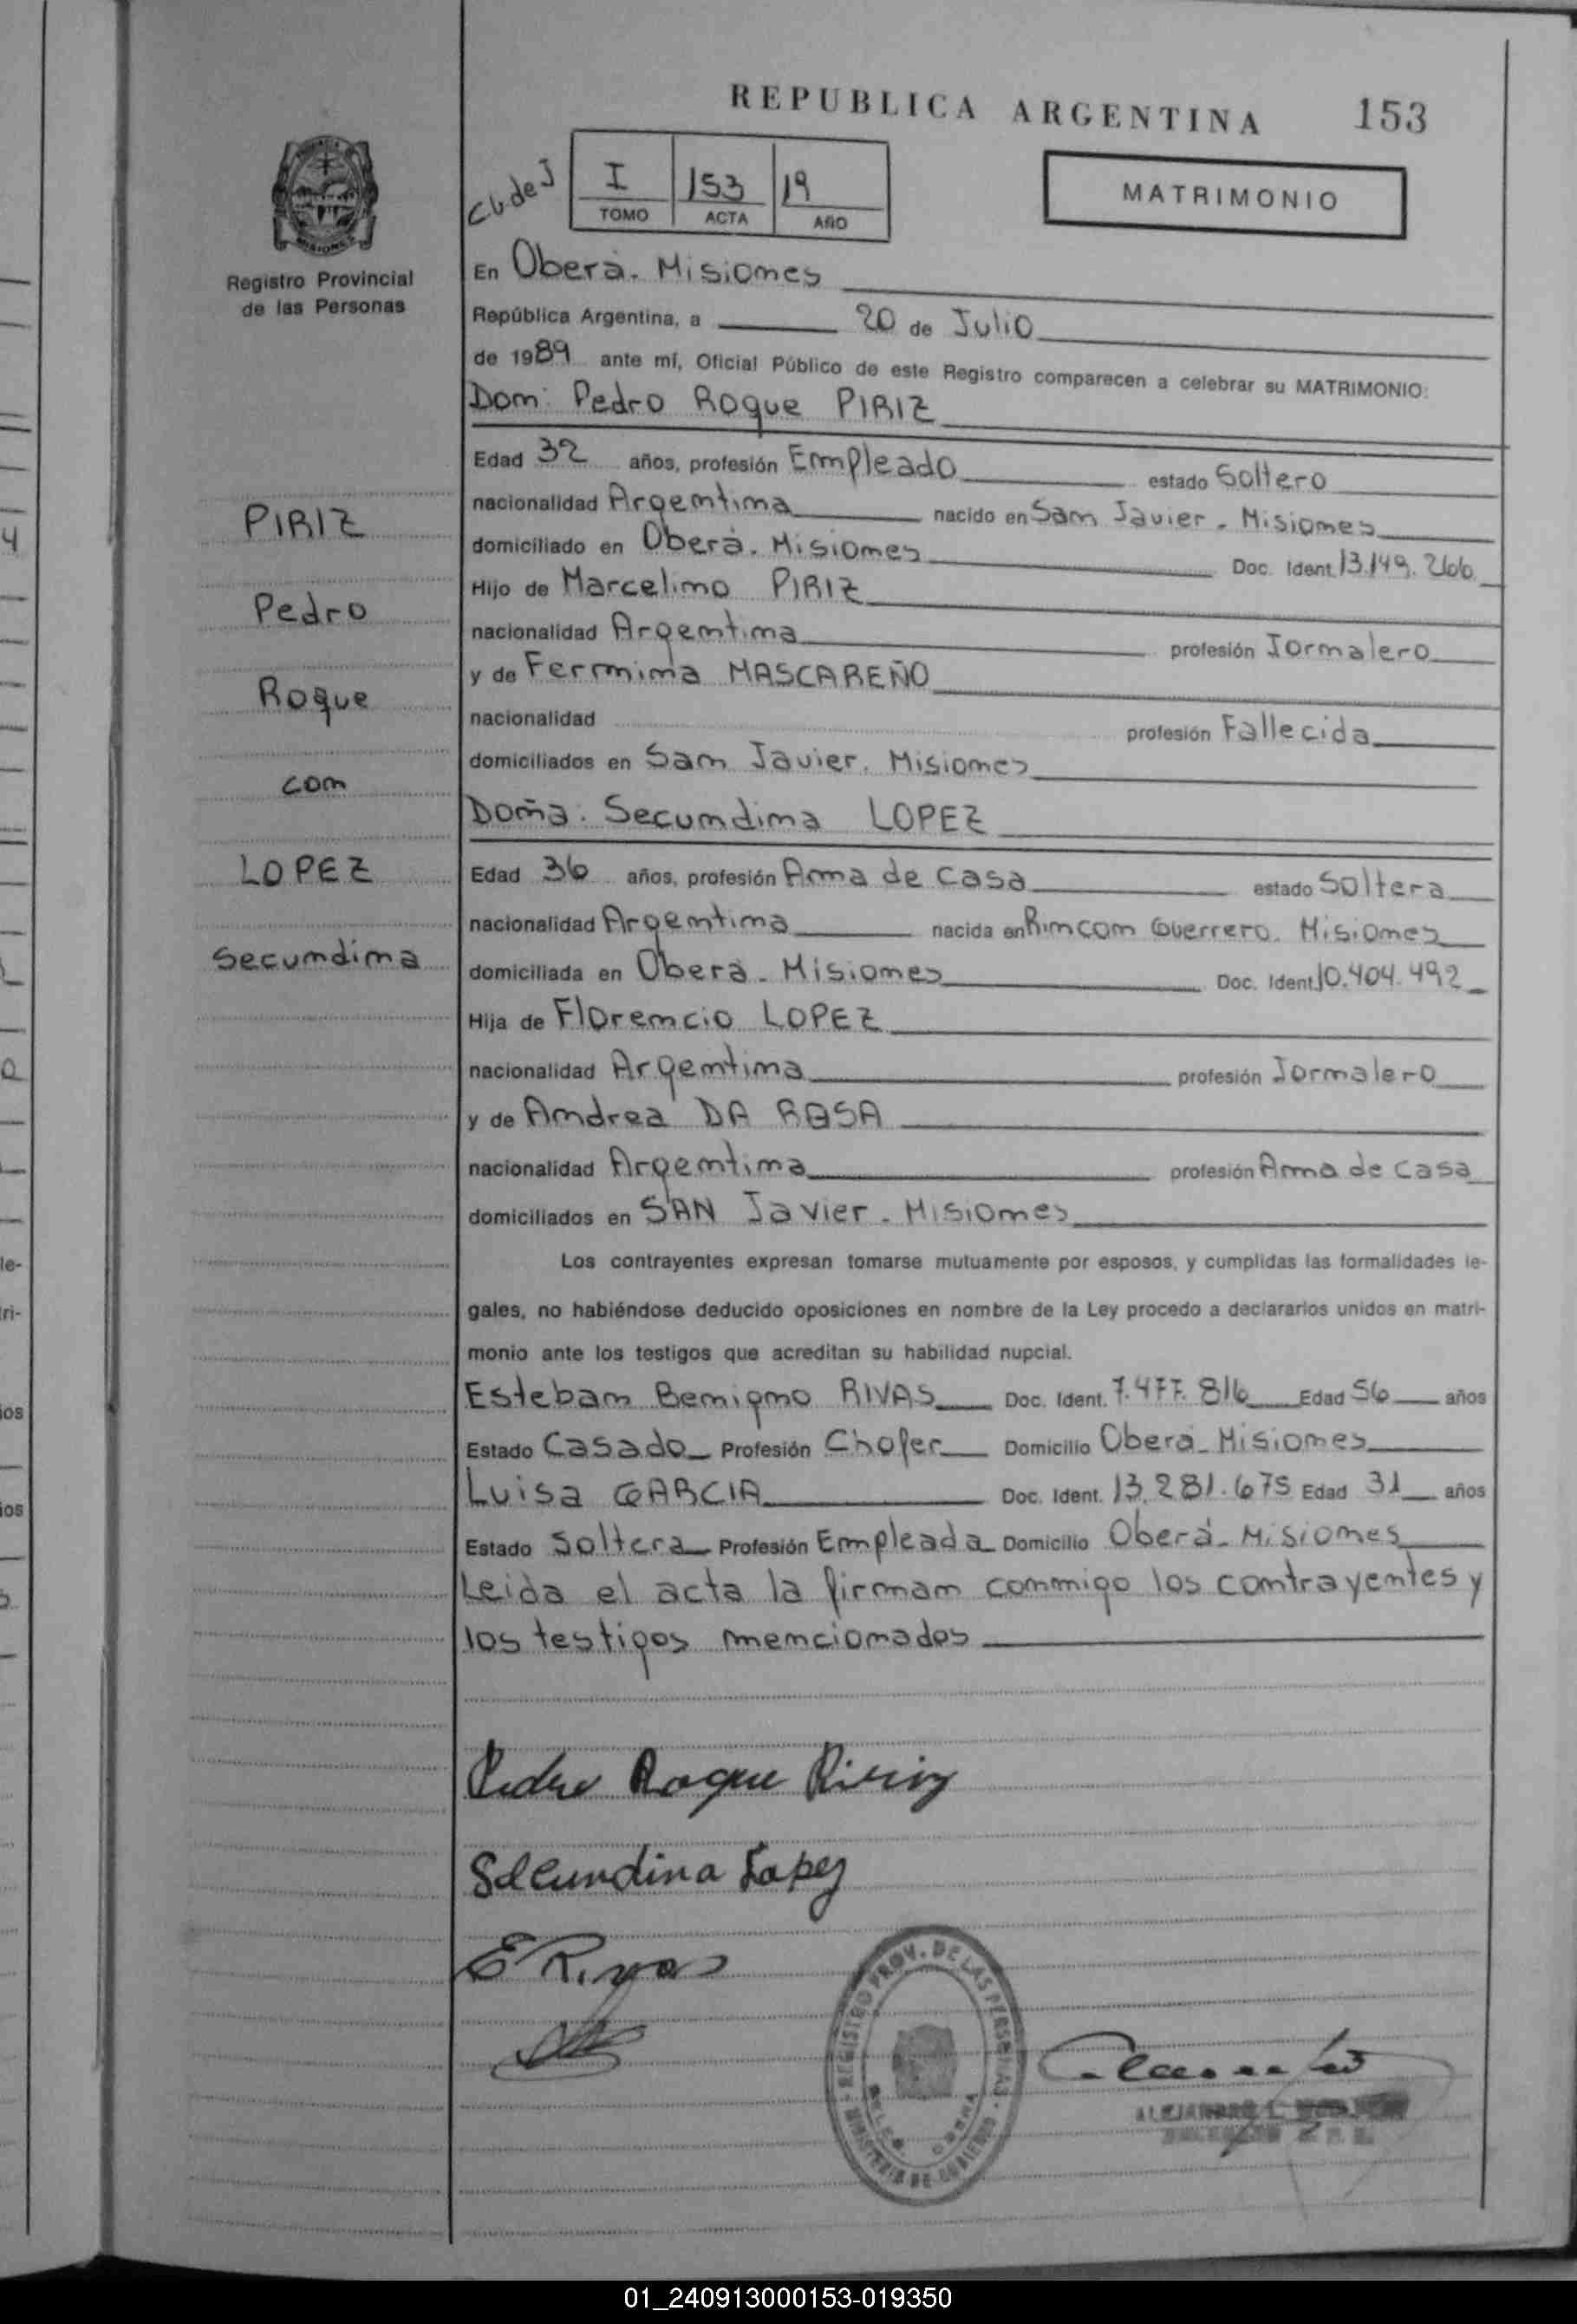 REPUBLICA ARGENTINA 153
C4 de J
I 153 19
TOMO ACTA AÑO
MATRIMONIO
Registro Provincial
de las Personas
En Oberá. Misiones
República Argentina, a 20 de Julio
de 1989 ante mí, Oficial Público de este Registro comparecen a celebrar su MATRIMONIO:
Don: Pedro Roque PIRIZ
Edad 32 años, profesión Empleado estado Soltero
nacionalidad Argentina nacido en San Javier - Misiones
domiciliado en Oberá. Misiones Doc. Ident. 13.149.266
Hijo de Marcelino PIRIZ
nacionalidad Argentina profesión Jornalero
y de Fermina MASCAREÑO
nacionalidad profesión Fallecida
domiciliados en San Javier. Misiones
Doña: Secundina LOPEZ
Edad 36 años, profesión Ama de casa estado Soltera
nacionalidad Argentina nacida en Rincon Guerrero. Misiones
domiciliada en Oberá - Misiones Doc. Ident. 10.404.492
Hija de Florencio LOPEZ
nacionalidad Argentina profesión Jornalero
y de Andrea DA ROSA
nacionalidad Argentina profesión Ama de casa
domiciliados en SAN Javier - Misiones
Los contrayentes expresan tomarse mutuamente por esposos, y cumplidas las formalidades le-
gales, no habiéndose deducido oposiciones en nombre de la Ley procedo a declararlos unidos en matri-
monio ante los testigos que acreditan su habilidad nupcial.
Esteban Benigno RIVAS Doc. Ident. 7.477.816 Edad 56 años
Estado Casado Profesión Chofer Domicilio Oberá - Misiones
Luisa GARCIA Doc. Ident. 13.281.675 Edad 31 años
Estado Soltera Profesión Empleada Domicilio Oberá - Misiones
Leida el acta la firman conmigo los contrayentes y
los testigos mencionados
PIRIZ
Pedro
Roque
con
LOPEZ
Secundina
Pedro Roque Piriz
Secundina Lopez
E Rivas
REGISTRO PROV. DE LAS PERSONAS
MINISTERIO DE GOBIERNO
01_240913000153-019350